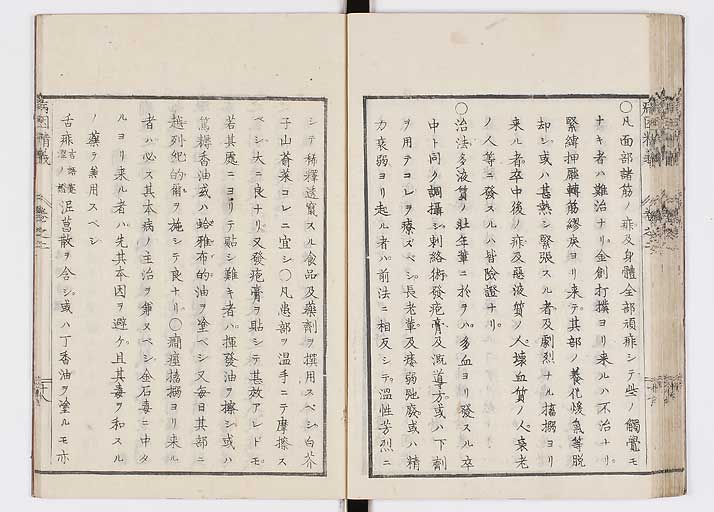 〇凡面部諸筋ノ痲及身體全部頑痲シテ些ノ觸覺モ
ナキ者ハ難治ナリ。金創打撲ヨリ来ルハ不治ナリ。
緊縛押壓轉筋繆戾ヨリ来テ其部ノ養化煖氣等脱
却シ或ハ甚熱シ緊張スル者及劇烈ナル搐搦ヨリ
来ル者卒中後ノ痲及惡液質ノ人壊血質ノ人衰老
ノ人等ニ發スルハ皆險證ナリ。
〇治法多液質ノ壮年輩ニ於ヲハ多血ヨリ發スル卒
中ト同ク調攝シ刺絡術發疱膏及誘導方或ハ下劑
ヲ用テコレヲ療スベシ。長老輩及痿弱弛廢或ハ精
力衰弱ヨリ起ル者ハ前法ニ相反シテ。溫性芳烈ニ
シテ稀釋透竄スル食品及藥劑ヲ撰用スベシ白芥
子山葵菜コレニ宜シ〇凡患部ヲ温手ニテ摩擦ス
ベシ大ニ良ナリ。又發疱膏ヲ貼シテ甚效アレドモ。
若其處ニヨリテ貼シ難キ者ハ。揮發油ヲ擦シ或ハ
篤耨香油或ハ蛤雅布的油ヲ塗ベシ又每日其部ニ
越列吉的爾ヲ施シテ良ナリ〇癇痙搐搦ヨリ来ル
者ハ必ス其本病ノ主治ヲ兼スベシ金石毒ニ中タ
ルヨリ来ル者ハ先其本因ヲ避ケ且其毒ヲ和スル
ノ藥ヲ兼用スベシ
舌痲 言語蹇澀ノ證 浥菖散ヲ含シ。或ハ丁香油ヲ塗ルモ亦
病因精義
卷之二
十八